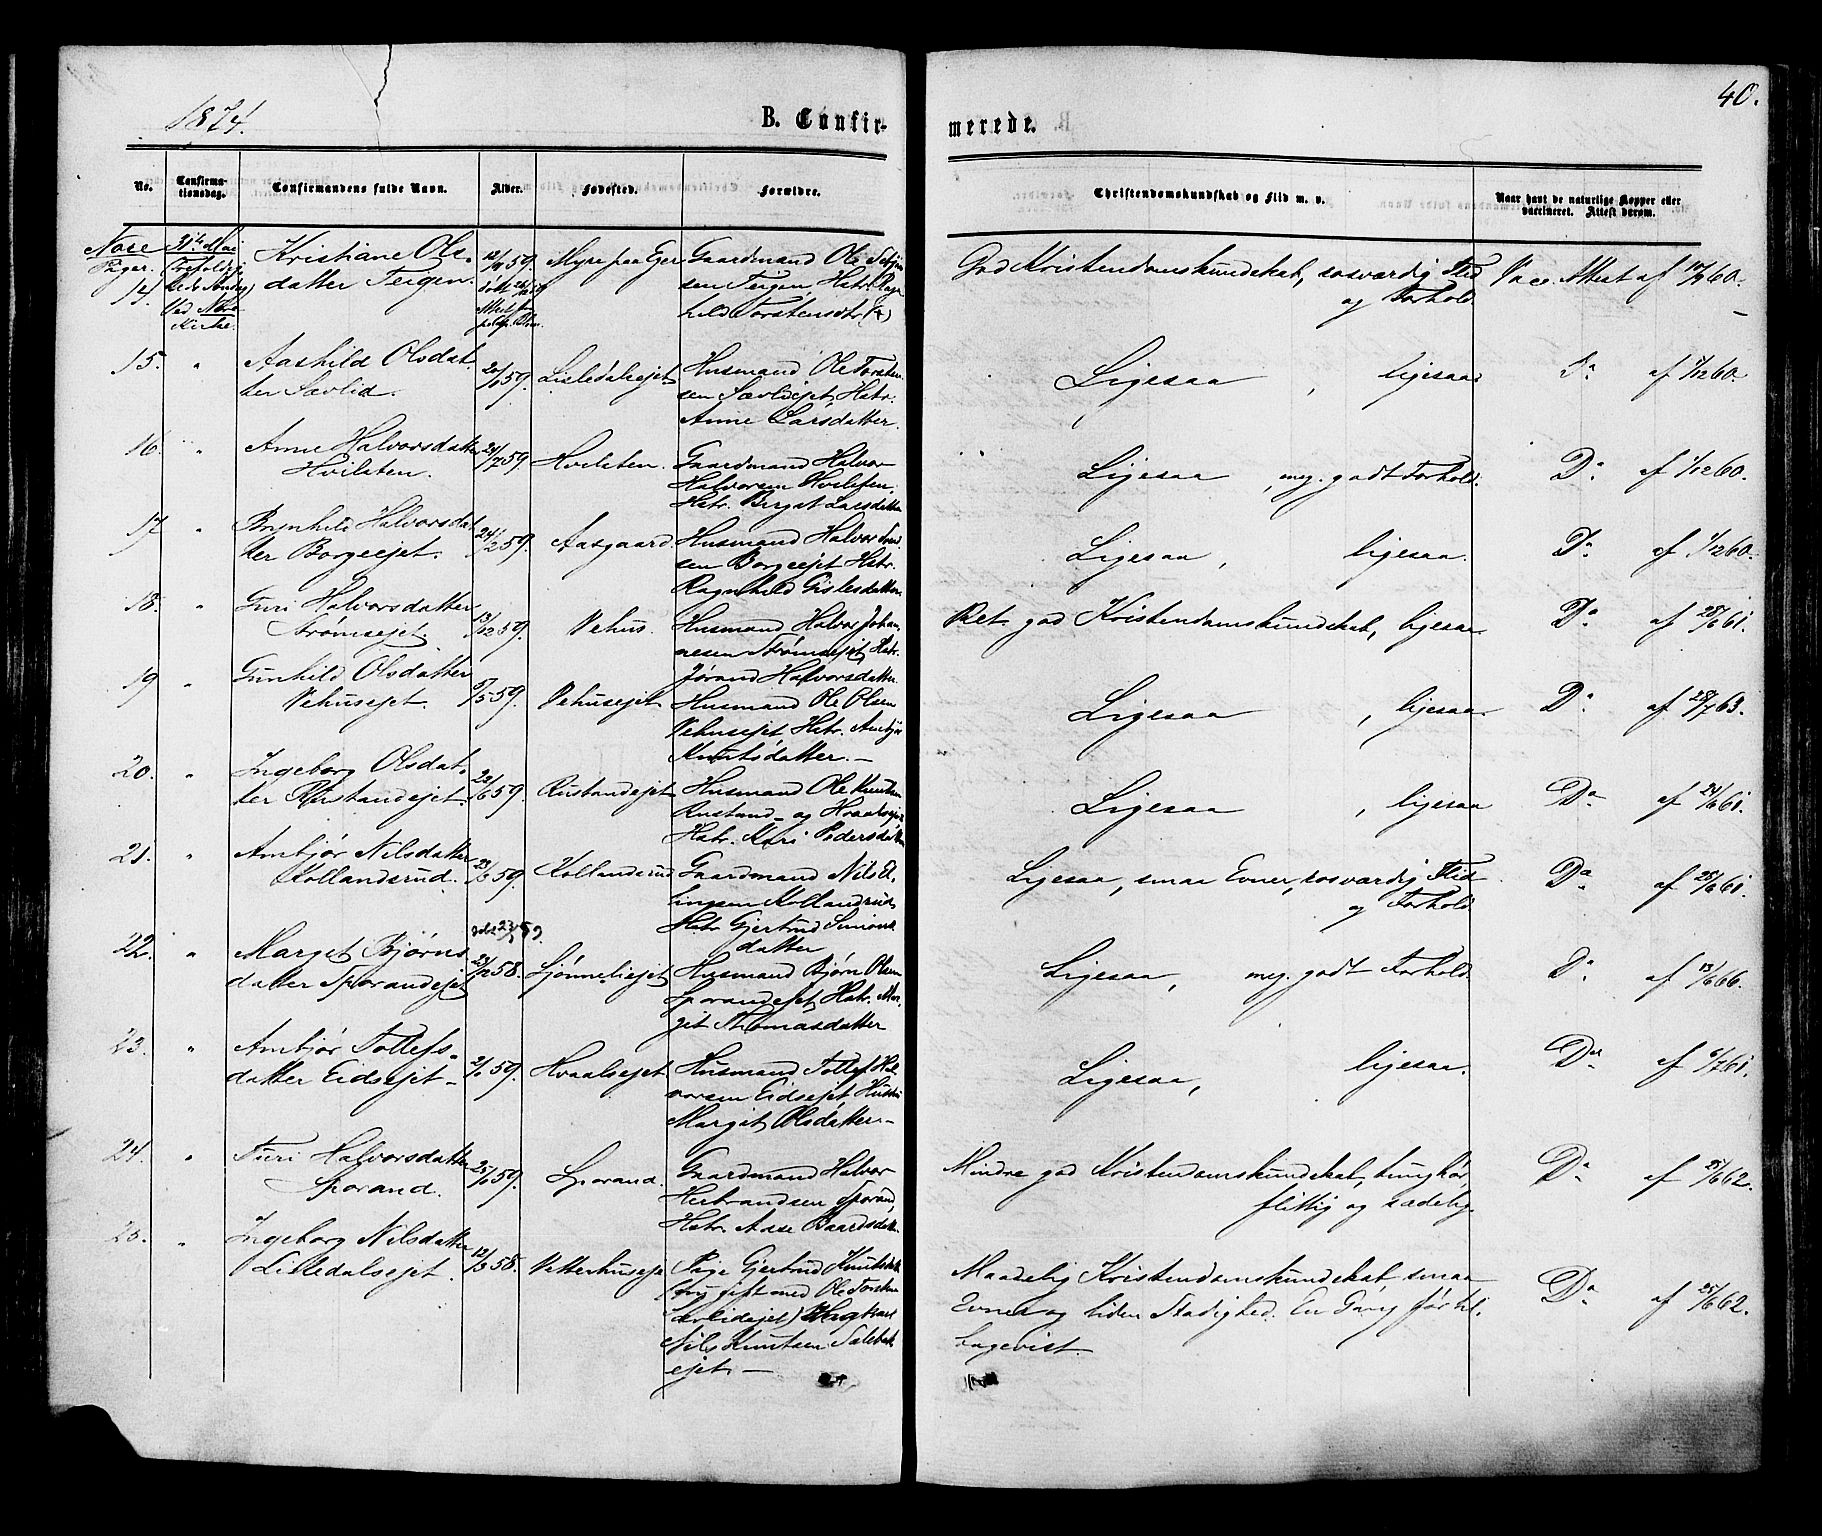 1874.
B. Confirmerede.
40.
No. Confirmationsdag. Confirmandens fulde Navn. Alder. Fødested. Forældre. Christendomskundskab og Flid m. v. Naar havt de naturlige Kopper eller vaccineret. Attest derom.
Nore
Piger.
14. 31te Mai
Trefoldig-
heds Søndag
Ved Nore
Kirke.
Kristiane Ols-
datter Teigen.
59.
Myre paa Ger
Gaardmand Ole
sen Teigen Hstr. Ragn
hild Torstensdtr.
God Kristendomskundskab, rosværdig Flid
og Forhold
Vacc. Attest af 60.
15. " Aashild Olsdat-
ter Sævlid.
59.
Lisledalseiet
Husmand Ole Torsten-
sen Sævlideiet, Hstr.
Anne Larsdatter.
Ligesaa, ligesaa
Do af 1/12 60.
16. " Anne Halvorsdatter
Hvilsten.
24/7 59.
Hvilsten.
Gaardmand Halvor
Halvorsen Hvilsten,
Hstr. Birgit Larsdatter
Ligesaa, meg. godt Forhold.
Do af 1/12 60.
17 " Brynhild Halvorsdat
ter Borgeejet.
24/2 59.
Aasgaard
Husmand Halvor
sen Borgeejet Hstr.
Ragnhild Gislesdatter.
Ligesaa, ligesaa.
Do af 1/12 60.
18. " Guri Halvorsdatter
Strømsejet.
13/12 59.
Vehus.
Husmand Halvor Johan
nesen Strømsejet, Hstr.
Jørand Halvorsdatter
Ret god Kristendomskundskab, ligesaa
Do af 28/6 61.
19 " Gunhild Olsdatter
Vehusejet.
5/5 59.
Vehusejet
Husmand Ole Olsen
Vehusejet Hstr. Ambjør
Knutsdatter. —
Ligesaa, ligesaa
Do af 28/7 63.
20. " Ingeborg Olsdat-
ter Rustandejet
22/6 59.
Rustandejet
Husmand Ole Knutsen
Rustand- og Hvaalsejet
Hstr. Kari Pedersdatter
Ligesaa, ligesaa
Do af 24/6 61.
21. " Ambjør Nilsdatter
Kollandsrud.
23/3 59.
Kollandsrud
Gaardmand Nils El-
lingsen Kollandsrud,
Hstr Gjertrud Simons
datter
Ligesaa, smaa Evner, rosværdig Flid
og Forhold
Do af 25/6 61.
22. " Marget Bjørns
datter Sporandejet
23/12 58.
Sjønneliejet
Husmand Bjørn Olsen
Sporandejet, Hstr. Mar-
git Thomasdatter
Ligesaa, meg. godt Forhold
Do af 13/6 66.
23. " Ambjør Tollefs-
datter Eidsejet —
59.
Hvaalsejet
Husmand Tollef Hal
vorsen Eidsejet Hustru
Margit Olsdatter. —
Ligesaa, ligesaa.
Do af 6/7 61.
24. " Turi Halvorsdatter
Sporand.
59.
Sporand.
Gaardmand Halvor
Herbrandsen Sporand,
Hstr. Aase Baardsdatt.
Mindre god Kristendomskundskab, tunghør,
flittig og sædelig.
Do af 25/6 62.
25. " Ingeborg Nilsdatter
Lisledalsejet.
12/3 58.
Vetterhuseje
Pige Gjertrud Knutsdatt
(nu gift med Ole Torstens
) Ungkarl
Nils Knutsen
ejet —
Maadelig Kristendomskundskab smaa
Evner og liden Stadighed. En Gang før til
bagevist.
Do af 25/6 62.